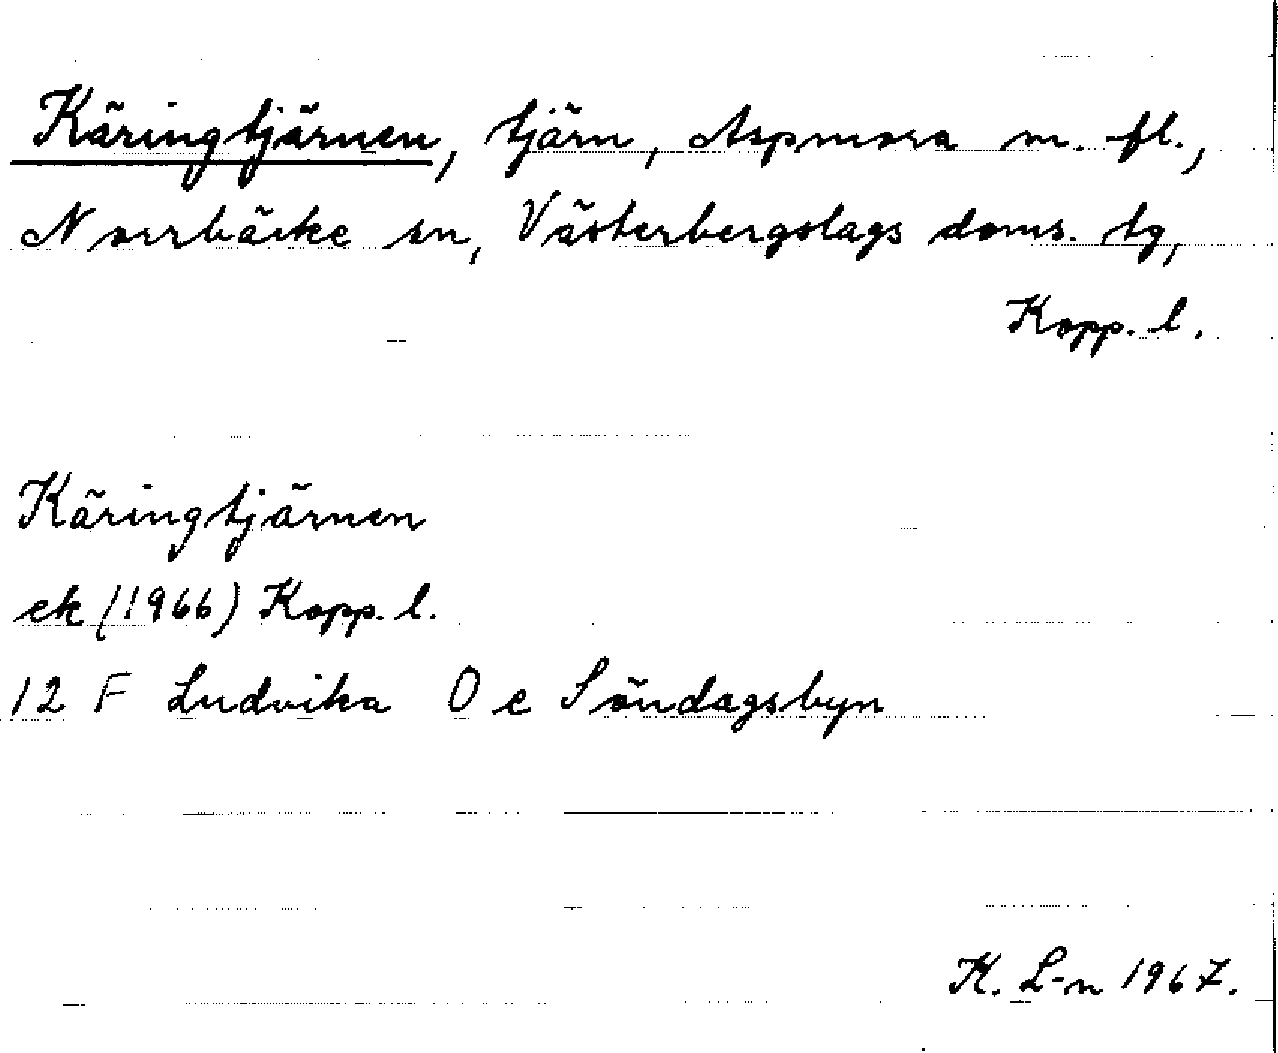 Käringtjärnen, tjärn, Aspmora m. fl.,
Norrbärke sn, Västerbergslags doms. tg,
Kopp. l.
Käringtjärnen
ek (1966) Kopp. l.
12 F Ludvika 0 e Söndagsbyn
K. L-n 1967.